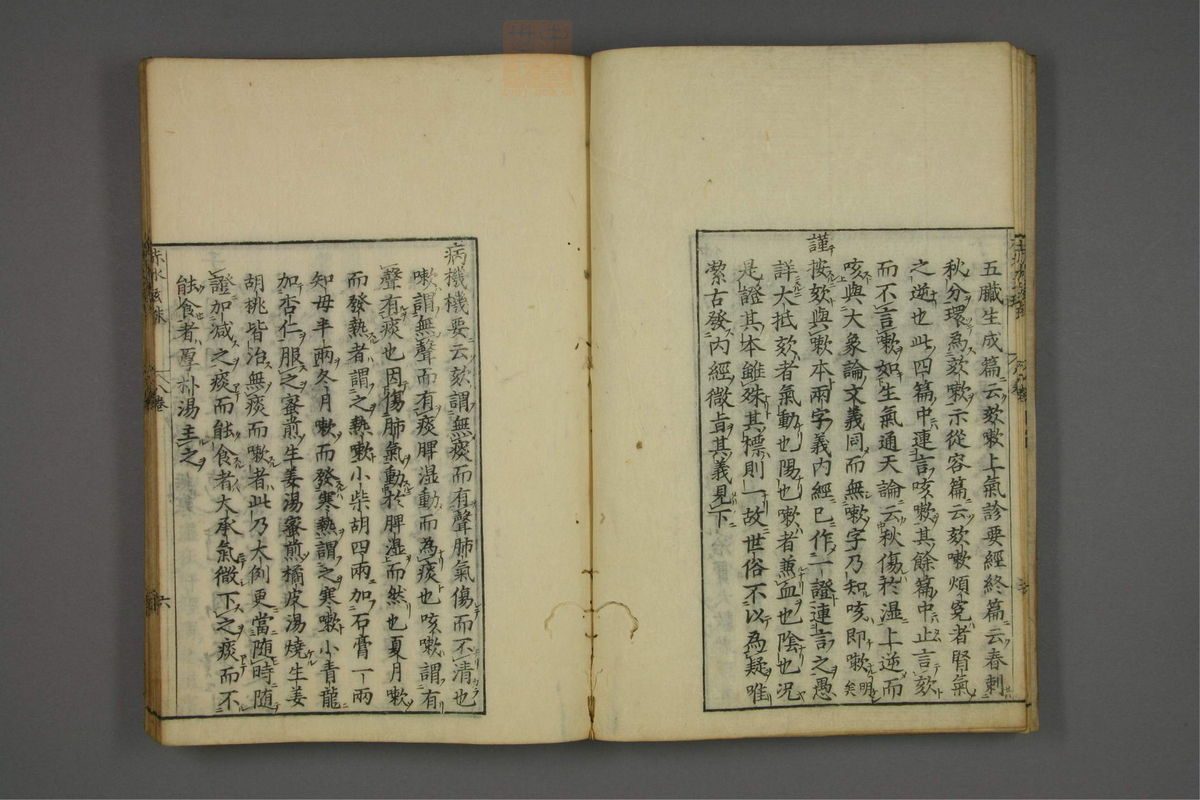 五臟生成篇云欬嗽上氣診要經終篇云春刺
秋分環為欬嗽示從容篇云欬嗽煩寃者腎氣
之逆也此四篇中連言咳嗽其餘篇中止言欬
而不言嗽如生氣通天論云秋傷於湿上逆而
咳與大象論文義同而無嗽字乃知咳即嗽明矣
謹按欬與嗽本兩字義內經已作一證連言之愚
詳大抵欬者氣動也陽也嗽者兼血也陰也况
是證其本雖殊其標則一故世俗不以為疑唯
潔古發內經微旨其義見下
病機機要云欬謂無痰而有聲肺氣傷而不清也
嗽謂無聲而有痰脾湿動而為痰也咳嗽謂有
聲有痰也因傷肺氣動於脾湿而然也夏月嗽
而發熱者謂之熱嗽小柴胡四兩加石膏一兩
知母半兩冬月嗽而發寒熱謂之寒嗽小青龍
加杏仁服之蜜煎生姜湯蜜煎橘皮湯燒生姜
胡桃皆治無痰而嗽者此乃大例更當随時随
證加減之痰而能食者大承氣微下之痰而不
能食者厚朴湯主之
六